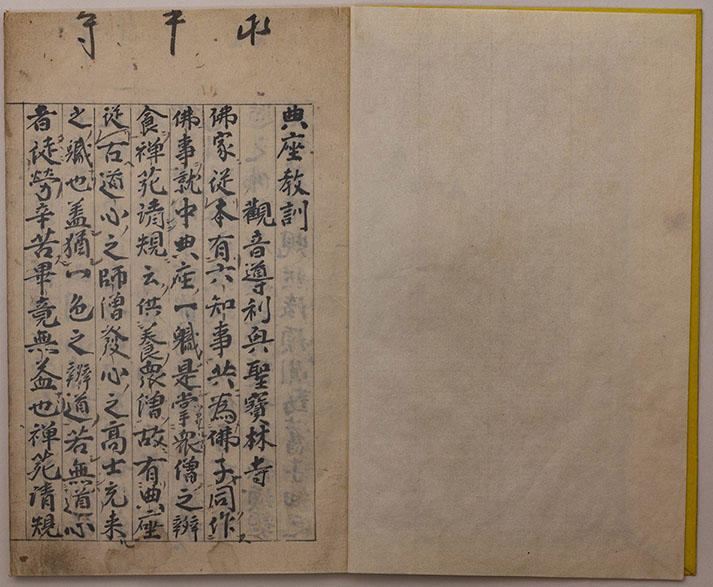 永平寺
典座教訓
觀音導利興聖寶林寺
佛家従本有六知事共為佛子同作
佛事就中典座一軄是掌衆僧之辨
食禅苑清規云供養衆僧故有典座
従古道心之師僧發心之高士充来
之軄也蓋猶一色之辨道若無道心
者徒勞辛苦畢竟無益也禅苑清規